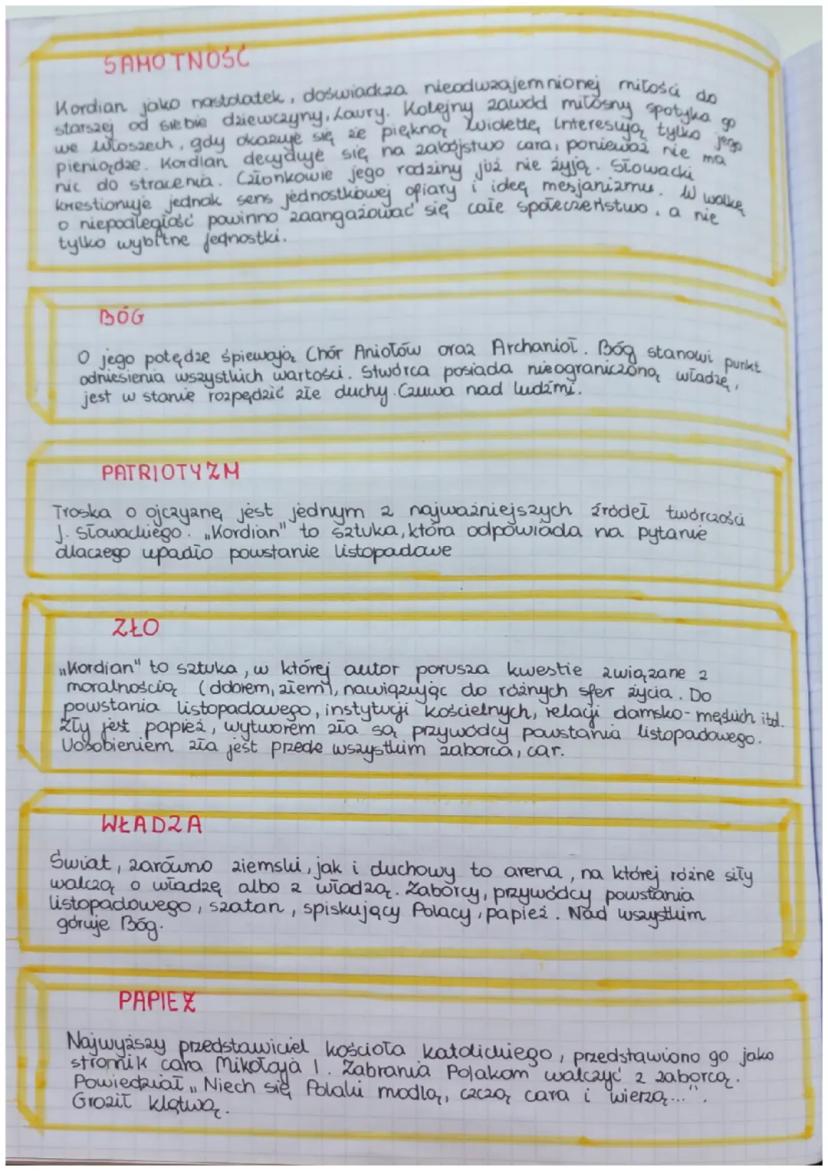 SAMOTNOŚĆ
Kordian jako nastolatek, doświadcza nieodwzajemnionej miłości do
starszej od siebie dziewczyny, Laury. Kolejny zawód miłosny spotyka go
we Włoszech, gdy okazuje się że piękną Wiolettę, interesują tylko jego
pieniądze. Kordian decyduje się na zabójstwo cara, ponieważ nie ma
nic do stracenia. Członkowie jego rodziny już nie żyją. Słowacki
kwestionuje jednak sens jednostkowej ofiary i ideę mesjanizmu. W walkę
o niepodległość powinno zaangażować się całe społeczeństwo, a nie
tylko wybitne jednostki.
BÓG
O jego potędze śpiewają Chór Aniołów oraz Archanioł. Bóg stanowi punkt
odniesienia wszystkich wartości. Stwórca posiada nieograniczoną władzę,
jest w stanie rozpędzić złe duchy. Czuwa nad ludźmi.
PATRIOTYZM
Troska o ojczyznę jest jednym z najważniejszych źródeł twórczości
J. Słowackiego. „Kordian" to sztuka, która odpowiada na pytanie
dlaczego upadło powstanie listopadowe
ZŁO
„Kordian" to sztuka, w której autor porusza kwestie związane z
moralnością (dobrem, złem), nawiązując do różnych sfer życia. Do
powstania listopadowego, instytucji kościelnych, relacji damsko-męskich itd.
Zły jest papież, wytworem zła są przywódcy powstania listopadowego.
Uosobieniem zła jest przede wszystkim zaborca, car.
WŁADZA
Świat, zarówno ziemski, jak i duchowy to arena, na której różne siły
walczą o władzę albo z władzą. Zaborcy, przywódcy powstania
listopadowego, szatan, spiskujący Polacy, papież. Nad wszystkim
góruje Bóg.
PAPIEŻ
Najwyższy przedstawiciel kościoła katolickiego, przedstawiono go jako
stronnik cara Mikołaja I. Zabrania Polakom walczyć z zaborcą.
Powiedział „Niech się Polaki modlą, czczą cara i wierzą...".
Groził klątwą.